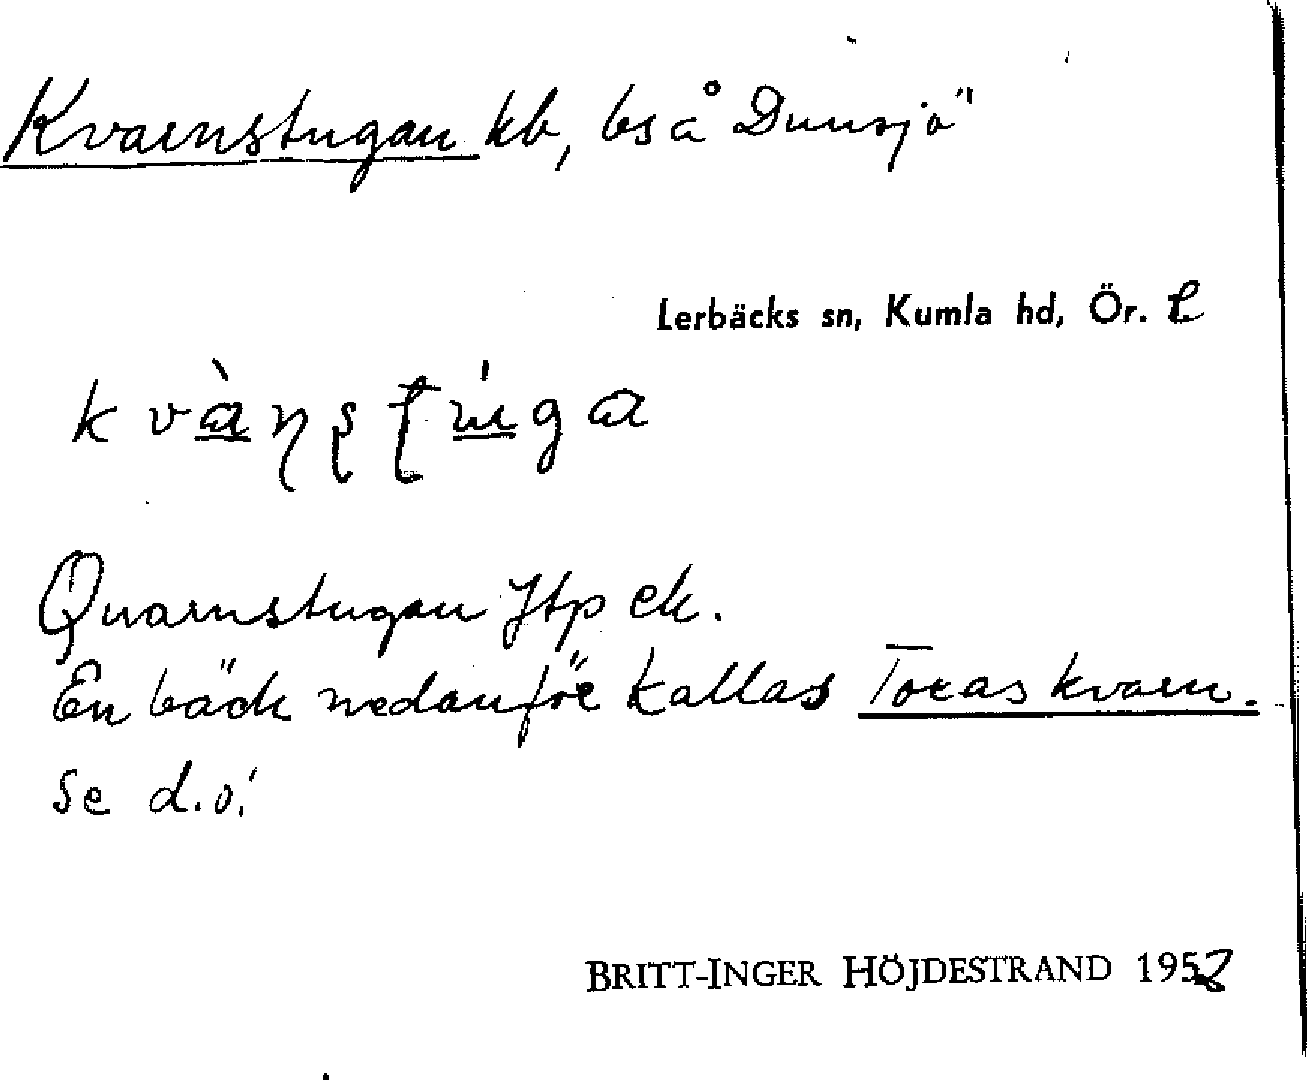 Kvarnstugan kb, bs å Dunsjö
Lerbäcks sn, Kumla hd, Ör. L
kvànʂʈúga
Quarnstugan Jtp ek.
En bäck nedanför kallas Toras kvarn.
Se d.o!
BRITT-INGER HÖJDESTRAND 1952